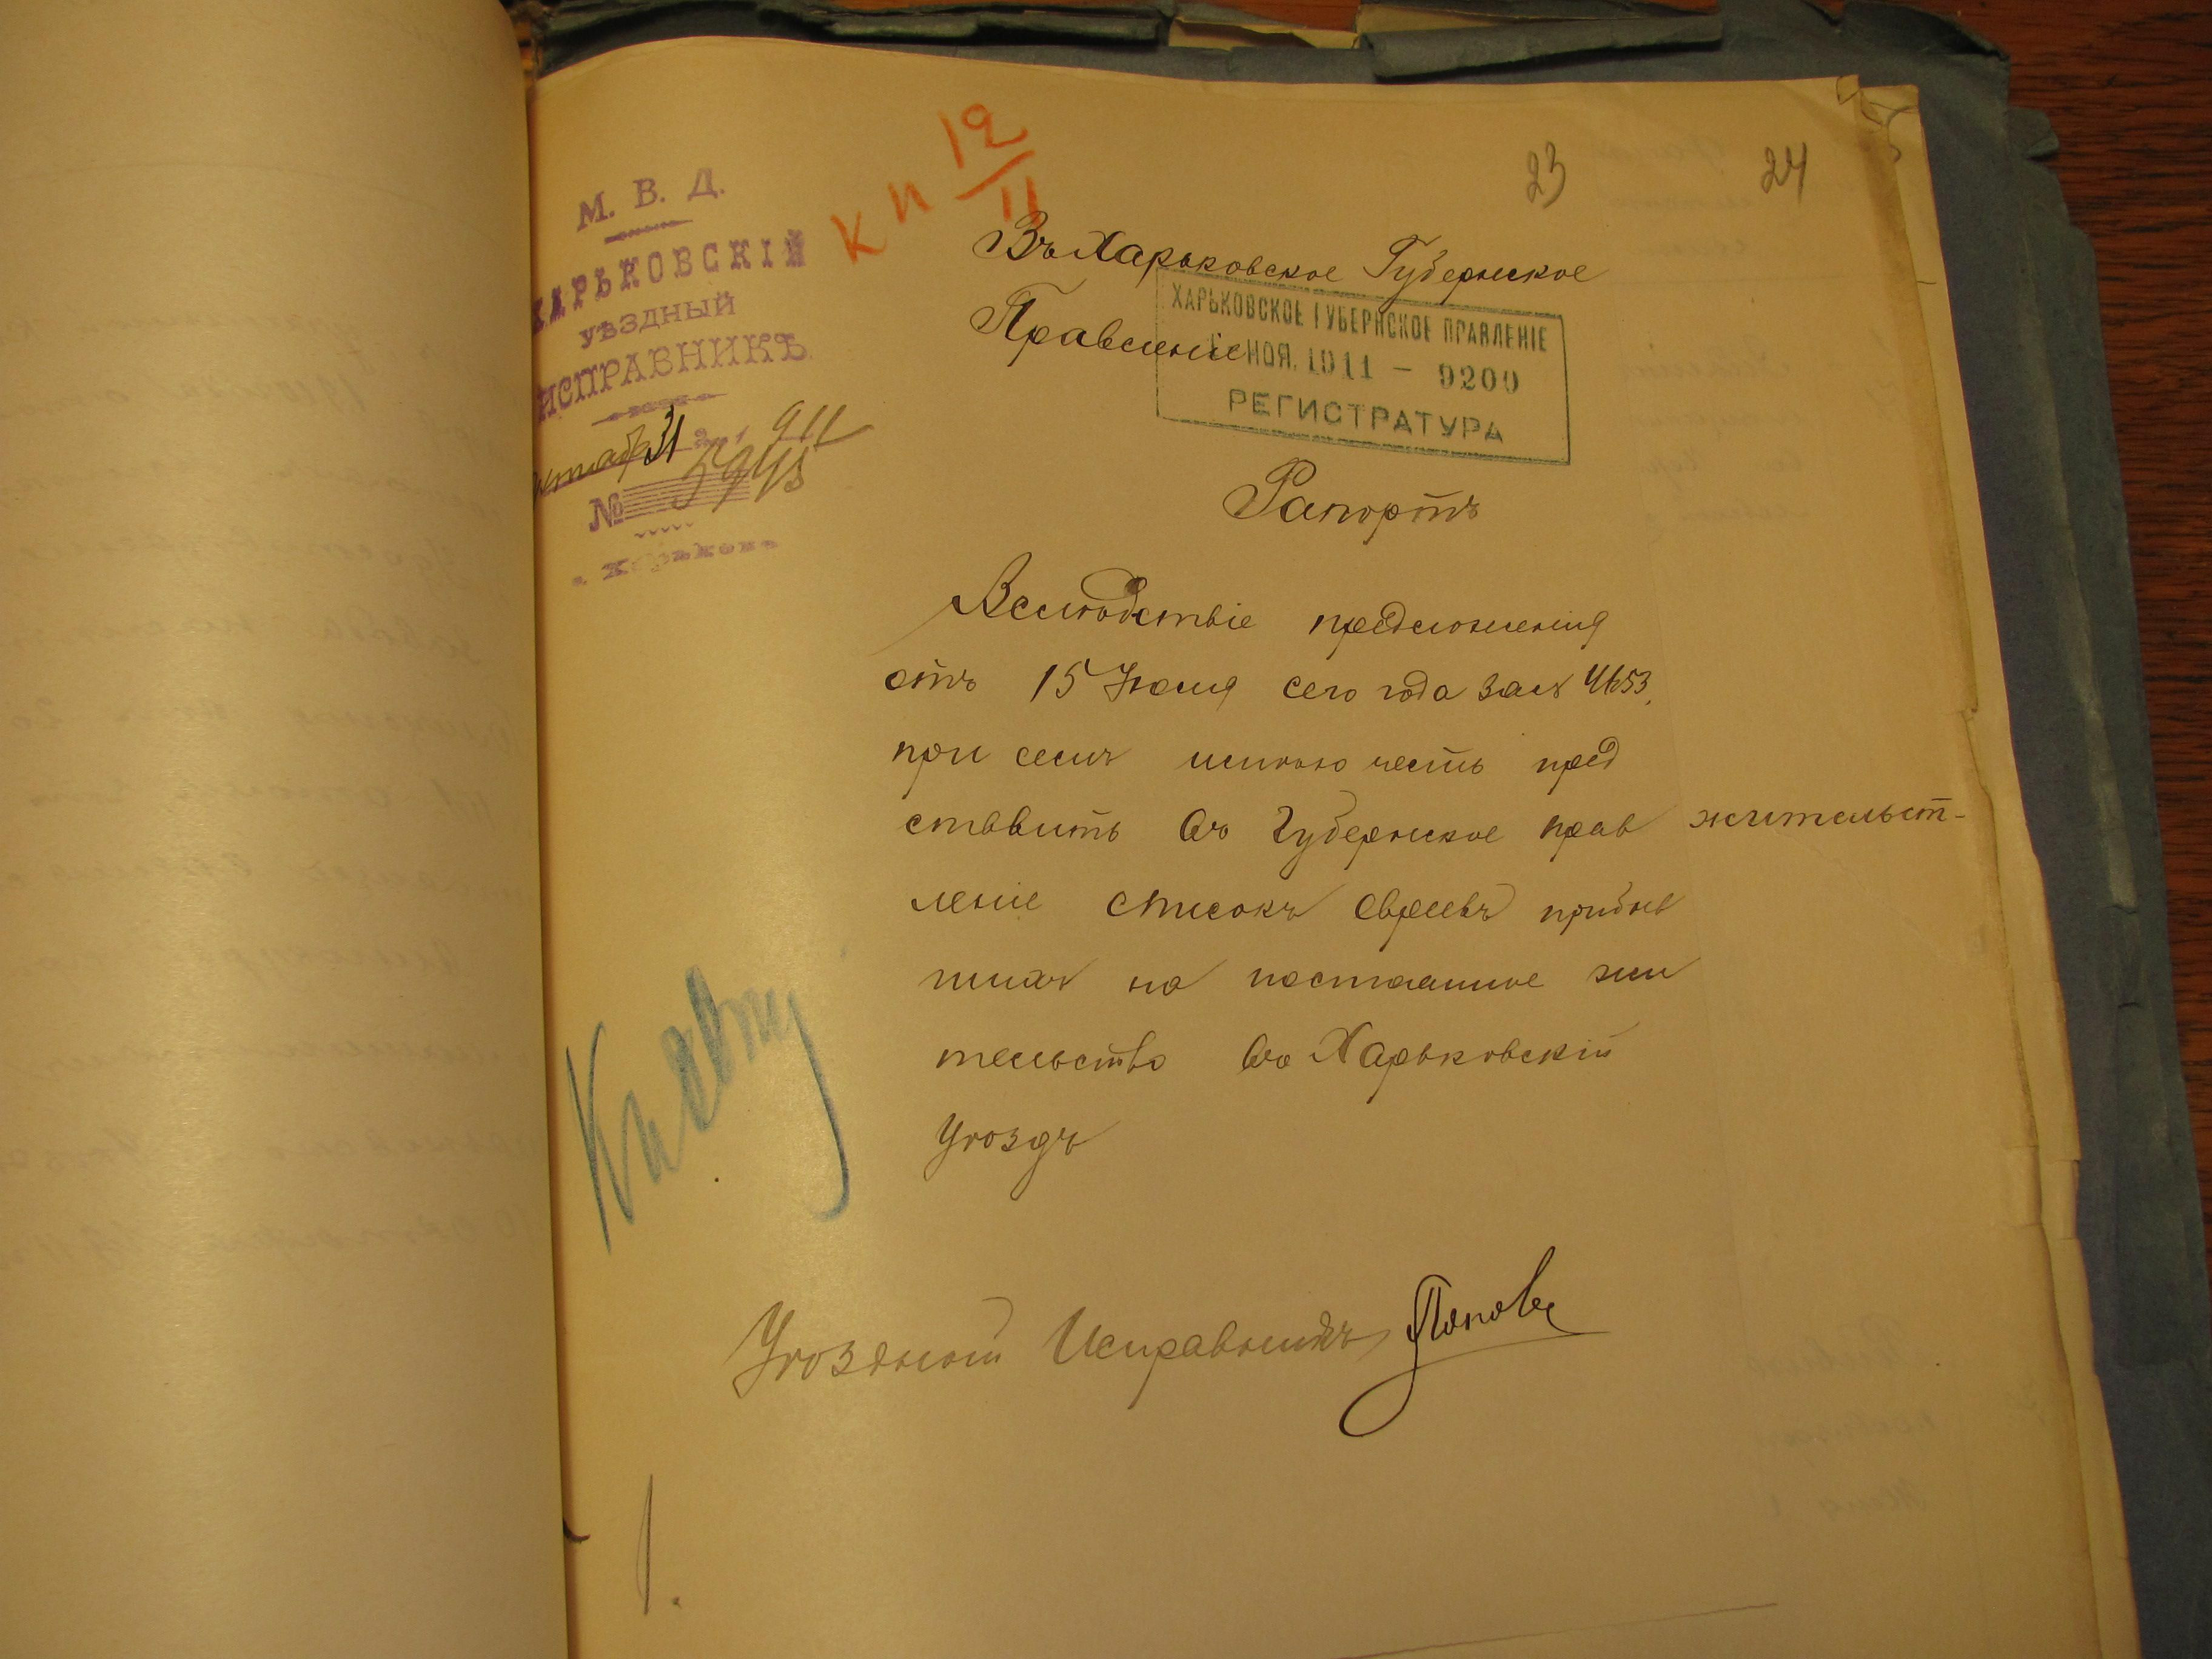 23
24
К и 12/11
М. В. Д.
ХАРЬКОВСКІЙ
УѢЗДНЫЙ
ИСПРАВНИКЪ
Октября 31 дня 1911
№ 5948
г. Харьковъ
Въ Харьковское Губернское
Правленіе
ХАРЬКОВСКОЕ ГУБЕРНСКОЕ ПРАВЛЕНІЕ
НОЯ. 1911 – 9200
РЕГИСТРАТУРА
Рапортъ
Вслѣдствіе предложенія
отъ 15 Іюля сего года за № 4653,
при семъ имѣю честь пред
ставить въ Губернское прав
леніе списокъ евреевъ прибыв
шихъ на постоянное жи
тельство въ Харьковскій
уѣздъ
жительст-
Уѣздный Исправникъ Поповъ
1.